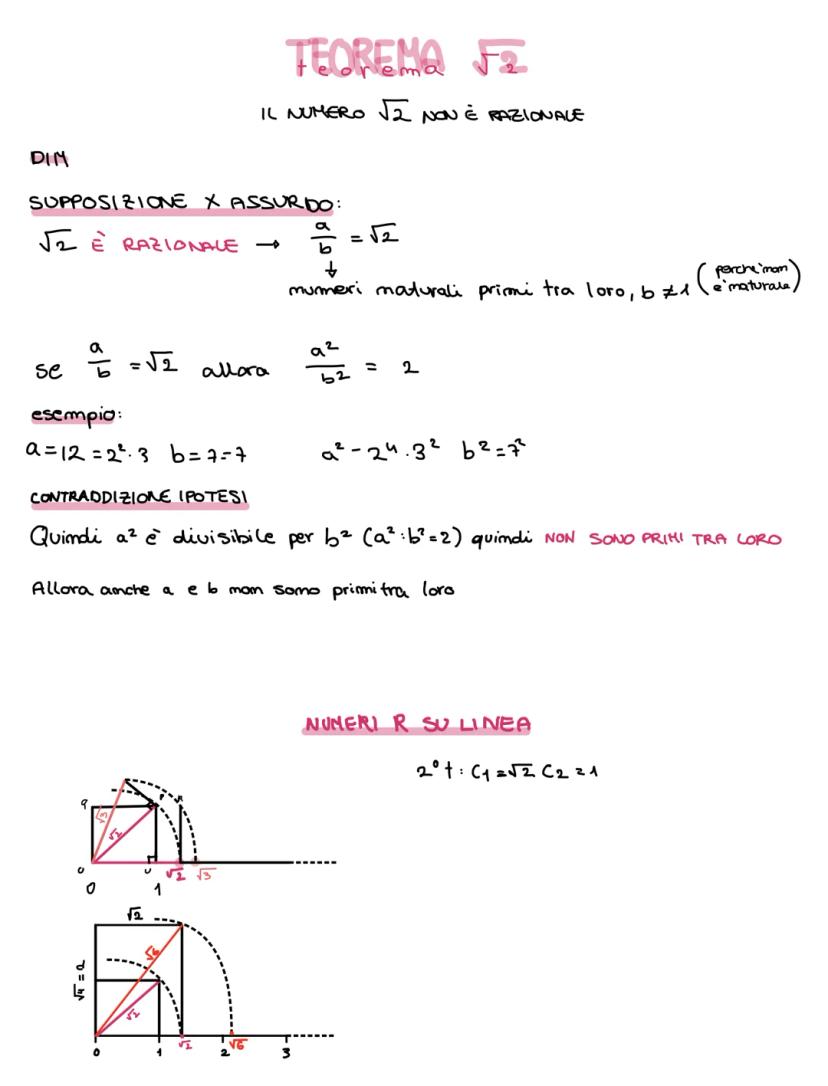 TEOREMA √2
teorema
IL NUMERO √2 NON È RAZIONALE
DIM
SUPPOSIZIONE X ASSURDO:
√2 È RAZIONALE → a/b = √2
↓
numeri naturali primi tra loro, b ≠ 1 (perche' non e' naturale)
se a/b = √2 allora a²/b² = 2
esempio:
a=12=2²·3 b=7=7 a²-2⁴·3² b²=7²
CONTRADDIZIONE IPOTESI
Quindi a² è divisibile per b² (a²:b²=2) quindi NON SONO PRIMI TRA LORO
Allora anche a e b non sono primi tra loro
NUMERI R SU LINEA
2°t: C1=√2 C2=1
√3
√2
U
√2 √3
0 1
√2
√6
√4=2
√2
√2 √6
0 1 2 3